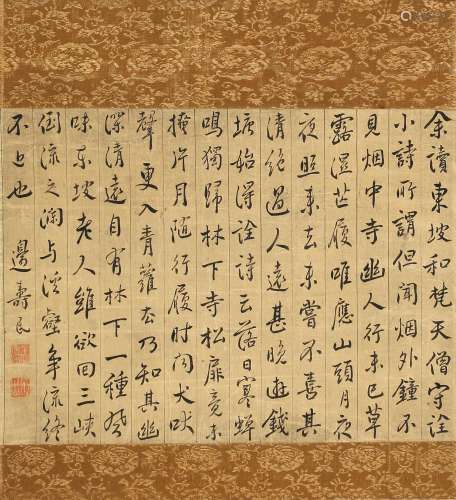 余讀東坡和梵天僧守詮
小詩所謂但聞烟外鐘不
見烟中寺幽人行未已草
露湿芒履唯應山頭月夜
夜照来去未嘗不喜其
清絕過人遠甚晚遊錢
塘始得詮詩云落日寒蟬
鳴獨歸林下寺松扉竟未
掩片月随行履时闻犬吠
聲更入青蘿去乃知其幽
深清遠自有林下一種
味東坡老人雖欲回三峡
倒流之瀾與溪壑争流终
不上也
邊壽民